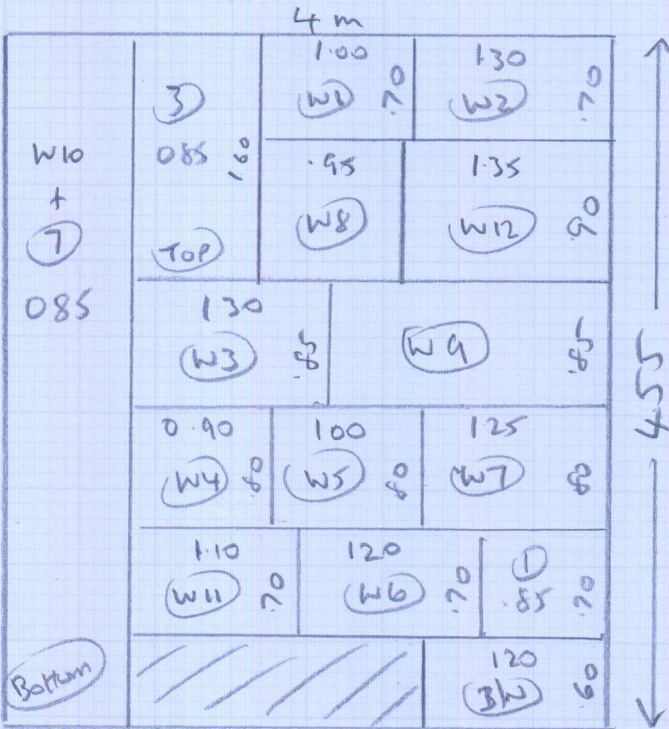 4 m
W10
+
7
085
Bottom
3
085
1.60
TOP
1.00
W1
.70
1.30
W2
.70
.95
W8
1.35
W12
.90
1.30
W3
.85
W9
.85
0.90
W4
.80
100
W5
.80
125
W7
.80
1.10
W11
.70
120
W6
.70
1
.85
.70
120
BW
60
455